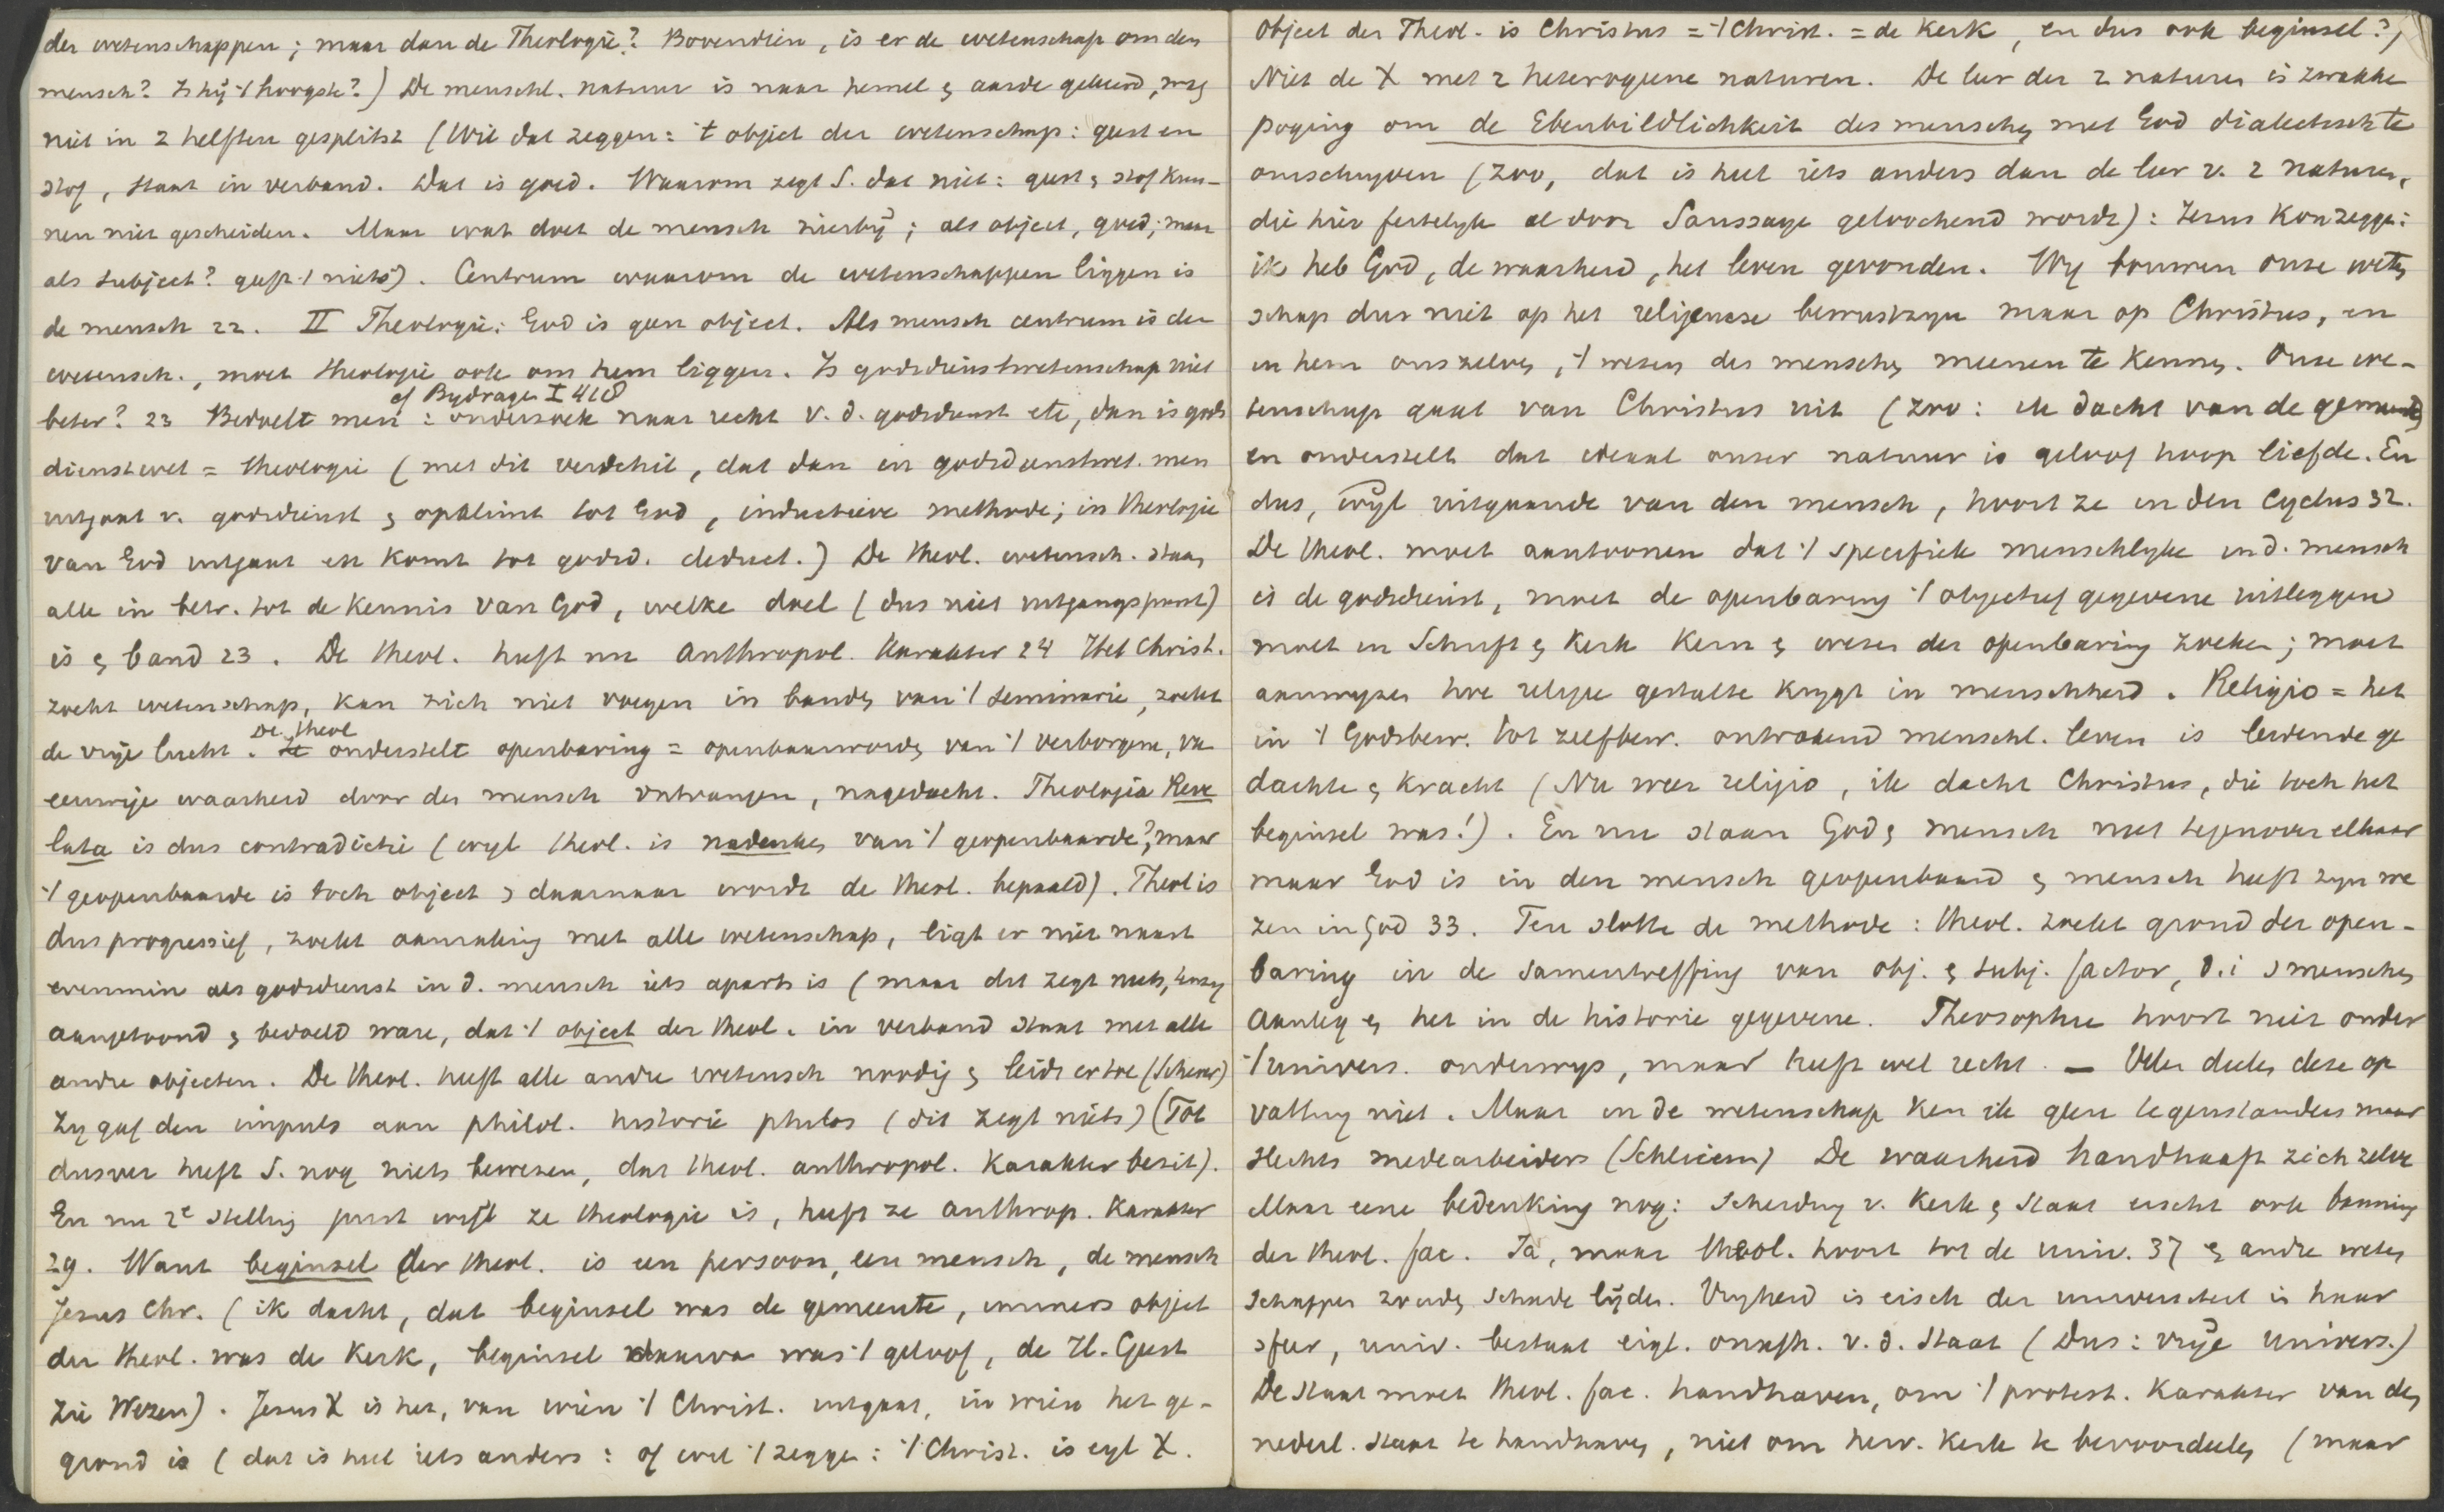 der wetenschappen; maar dan de Theologie? Bovendien, is er de wetenschap om den
mensch? Is hij 't hoogste?) De menschl. natuur is naar hemel & aarde gekeerd, mag
niet in 2 helften gesplitst (Wil dat zeggen: 't object der wetenschap: geest en
stof, staat in verband. Dat is goed. Waarom zegt S. dat niet: geest & stof kun-
nen niet gescheiden. Maar wat doet de mensch hierbij; als object, goed; maar
als subject? geeft 't niets). Centrum waarom de wetenschappen liggen is
de mensch 22. II Theologie: God is geen object. Als mensch centrum is der
wetensch., moet theologie ook om hem liggen. Is godsdienstwetenschap niet
cf Bydragen I 418
beter? 23 Bedoelt men: onderzoek naar recht v. d. godsdienst etc, dan is gods
dienstwet = theologie (met dit verschil, dat dan in godsdienstwet. men
uitgaat v. godsdienst & opklimt tot God, inductieve methode; in theologie
van God uitgaat en komt tot godsd. deduct.) De theol. wetensch. staan
alle in betr. tot de kennis van God, welke doel (dus niet uitgangspunt)
is & band 23. De theol. heeft nu anthropol. karakter 24 Het Christ.
zoekt wetenschap, kan zich niet voegen in banden van 't seminarie, zoekt
De theol
de vrije lucht. Ze onderstelt openbaring = openbaarwording van 't verborgene, va
eeuwige waarheid door den mensch ontvangen, nagedacht. Theologia Reve
lata is dus contradictie (wyl theol. is nadenken van 't geopenbaarde?, maar
't geopenbaarde is toch object & daarnaar wordt de theol. bepaald). Theol is
dus progressief, zoekt aanraking met alle wetenschap, ligt er niet naast
evenmin als godsdienst in d. mensch iets aparts is (maar dit zegt niets, tenzy
aangetoond & bedoeld ware, dat 't object der theol. in verband staat met alle
andre objecten. De theol. heeft alle andre wetensch noodig & leidt ertoe (Scherer)
Zy gaf den impuls aan philol. historie philos (dit zegt niets) (Tot
dusver heeft S. nog niets bewezen, dat theol. anthropol. karakter bezit).
En nu 2e stelling juist wyl ze theologie is, heeft ze anthrop. karakter
29. Want beginsel der theol. is een persoon, een mensch, de mensch
Jezus Chr. (ik dacht, dat beginsel was de gemeente, immers object
der theol. was de kerk, beginsel daarva was 't geloof, de H. Geest
zie Wezen). Jezus X is het, van wien 't Christ. uitgaat, in wien het ge-
grond is (dat is heel iets anders: of wel 't zegge: 't Christ. is eyl X.
Object der Theol. is Christus = 't Christ. = de kerk, en dus ook beginsel?)
Niet de X met 2 heterogene naturen. De leer der 2 naturen is zwakke
poging om de Ebenbildlichkeit des menschen met God dialectisch te
omschryven (zoo, dat is heel iets anders dan de leer v. 2 naturen,
die hier feitelyk al door Saussaye geloochend wordt): Jezus kon zeggen:
ik heb God, de waarheid, het leven gevonden. Wy bouwen onze weten
schap dus niet op het religieuse bewustzyn maar op Christus, en
in hem onszelven, 't wezen des menschen meenen te kennen. Onze we-
tenschap gaat van Christus uit (zoo: ik dacht van de gemeente)
en onderstelt dat ideaal onzer natuur is geloof hoop liefde. En
dus, wyl uitgaande van den mensch, hoort ze in den cyclus 32.
De theol. moet aantoonen dat 't specifiek menschelyke in d. mensch
is de godsdienst, moet de openbaring 't objectief gegevene uitleggen
moet in Schrift & kerk kern & wezen der openbaring zoeken; moet
aanwyzen hoe religie gestalte krygt in menschheid. Religio = het
in 't Godsbew. tot zelfbew. ontwakend menschl. leven is leidende ge
dachte & kracht (Nu weer religio, ik dacht Christus, die toch het
beginsel was!). En nu staan God & mensch niet tegenover elkaar
maar God is in den mensch geopenbaard & mensch heeft zyn we
zen in God 33. Ten slotte de methode: theol. zoekt grond der open-
baring in de samentreffing van obj. & subj. factor, d.i. 's menschen
aanleg & het in de historie gegevene. Theosophie hoort niet onder
't univers. onderwys, maar heeft wel recht. — Velen deelen deze op
vatting niet. Maar in de wetenschap ken ik geen tegenstanders maar
slechts medearbeiders (Schleierm) De waarheid handhaaft zich zelve
Maar eene bedenking nog: Scheiding v. kerk & Staat eischt ook banning
der theol. fac. Ja, maar theol. hoort tot de univ. 37 & andre weten
schappen zouden schade lijden. Vryheid is eisch der universiteit in haar
sfeer, univ. bestaat eigl. onafh. v. d. Staat (Dus: vrije Univers.)
De Staat moet theol. fac. handhaven, om 't protest. karakter van den
nederl. Staat te handhaven, niet om herv. kerk te bevoordeelen (maar